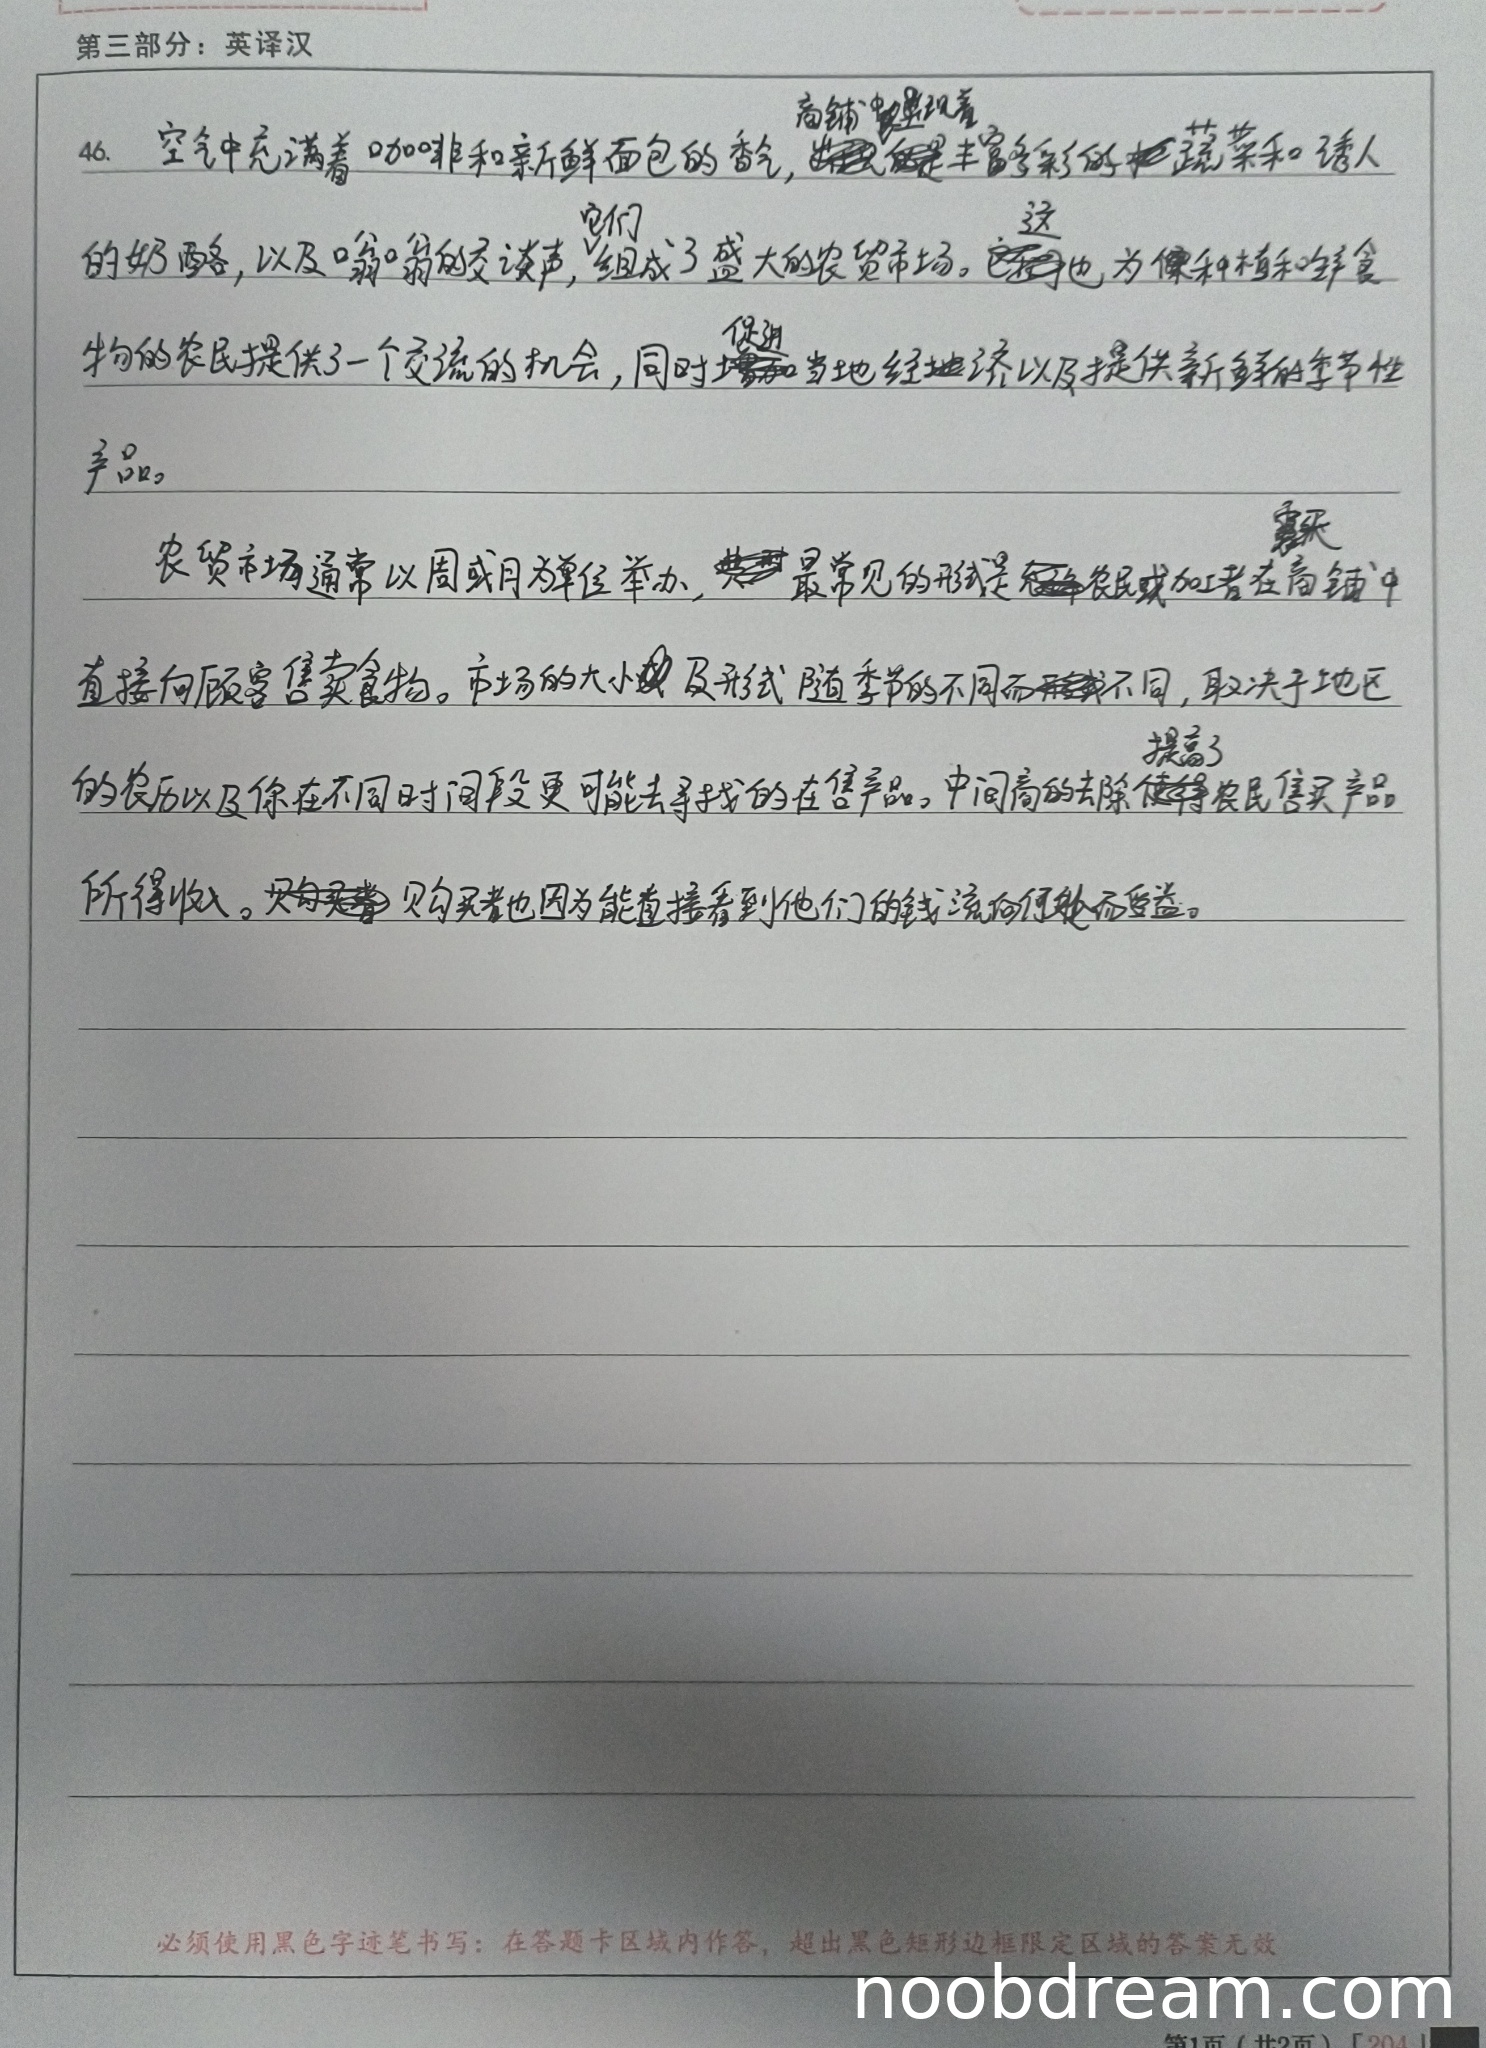 第三部分：英译汉
46. 空气中充满着咖啡和新鲜面包的香气，商铺中呈现着丰富多彩的蔬菜和诱人
的奶酪，以及嗡嗡的交谈声，它们组成了盛大的农贸市场。这也为种植和鲜食
物的农民提供了一个交流的机会，同时促进当地经济以及提供新鲜的季节性
产品。
农贸市场通常以周或月为单位举办，最常见的形式是农民或加工者在商铺中
直接向顾客售卖食物。市场的大小及形式随季节的不同而不同，取决于地区
的农历以及你在不同时间段更可能去寻找的在售产品。中间商的去除提高了农民售买产品
所得收入。购买者也因为能直接看到他们的钱流向何处而受益。
必须使用黑色字迹笔书写：在答题卡区域内作答，超出黑色矩形边框限定区域的答案无效
noobdream.com
第1页（共2页）「204」